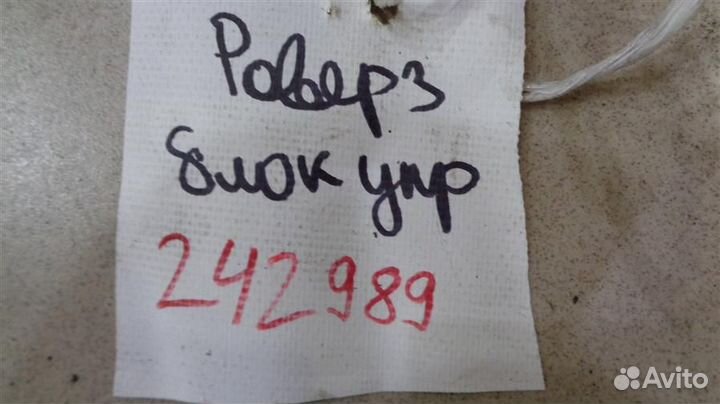 Ровер 3
блок упр
242989
Avito